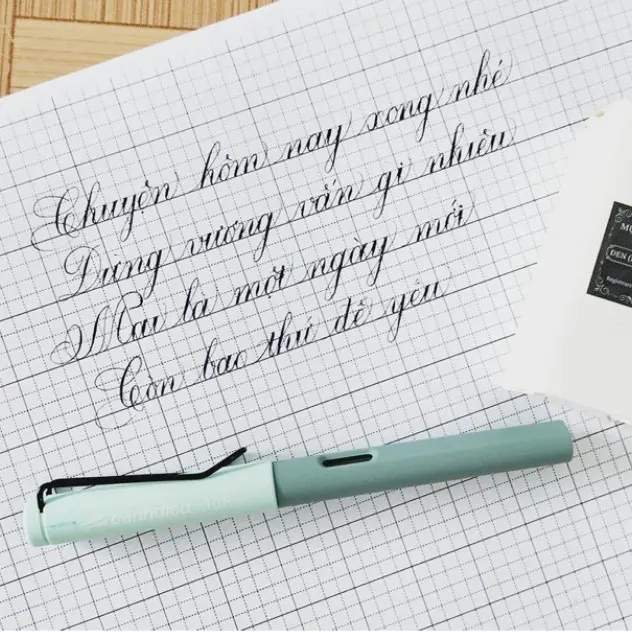 Chuyện hôm nay xong nhé
Đừng vương vấn gì nhiều
Mai là một ngày mới
Còn bao thứ để yêu
MỰ
ĐEN